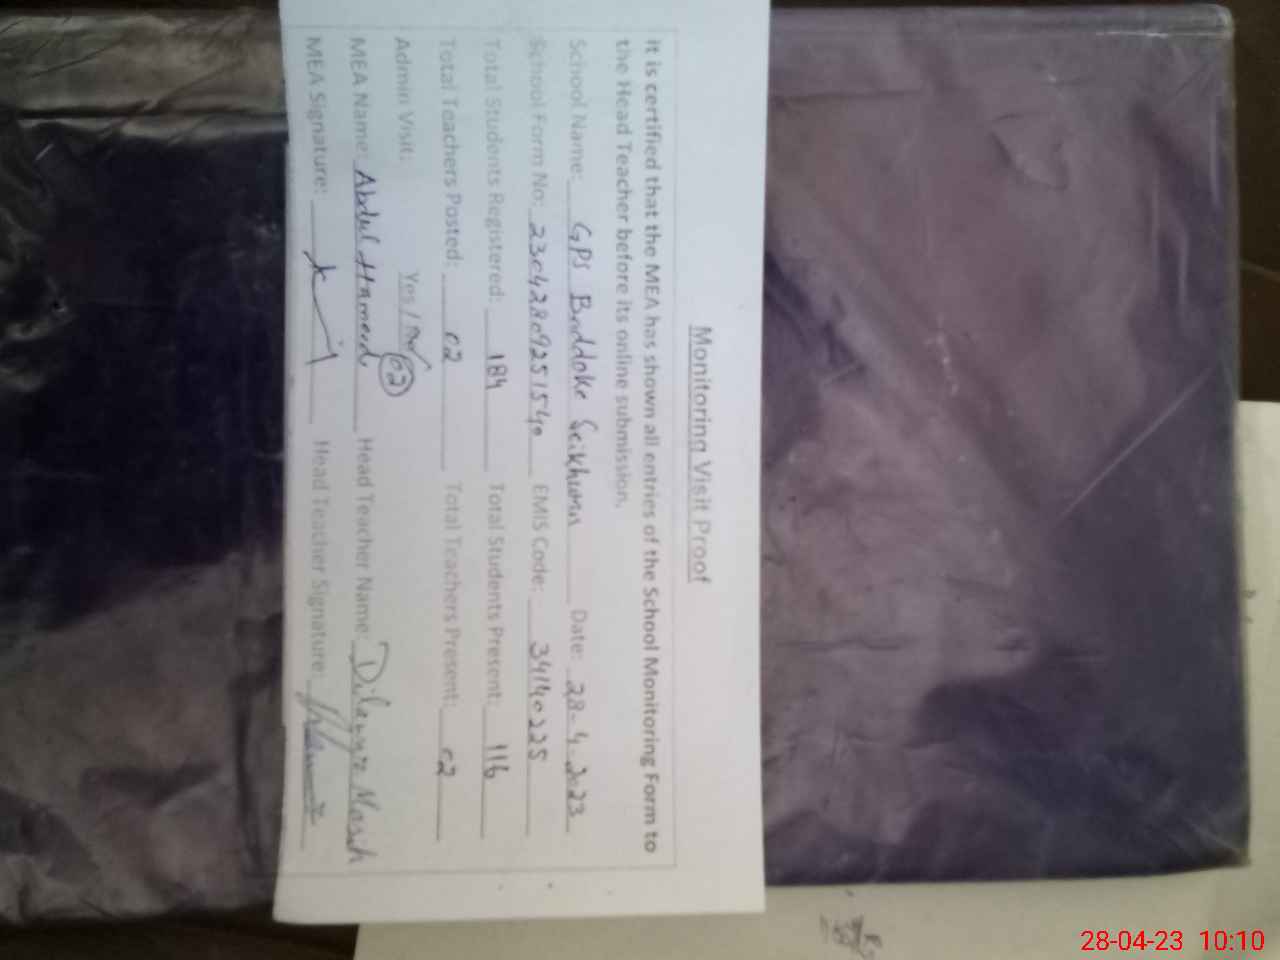 Monitoring Visit Proof
It is certified that the MEA has shown all entries of the School Monitoring Form to
the Head Teacher before its online submission.
School Name: GPS Baddoke Seikhwan Date: 28-4-2023
School Form No: 23042809251540 EMIS Code: 34140225
Total Students Registered: 184 Total Students Present: 116
Total Teachers Posted: 02 Total Teachers Present: 02
Admin Visit: Yes / No 02
MEA Name: Abdul Hameed Head Teacher Name: Dilawar Masih
MEA Signature: Head Teacher Signature:
28-04-23 10:10